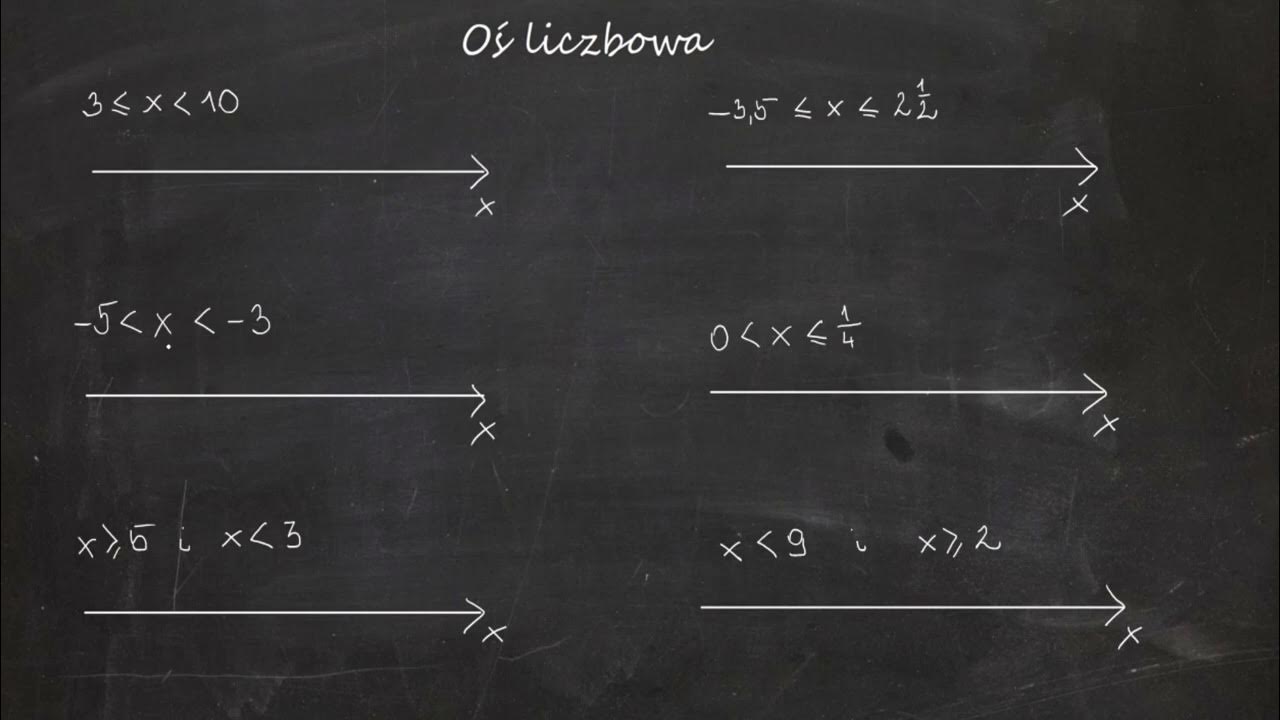 Oś liczbowa
3 ≤ x < 10
-3,5 ≤ x ≤ 2 1/2
x
x
-5 < x < -3
0 < x ≤ 1/4
x
x
x ≥ 5 i x < 3
x < 9 i x ≥ 2
x
x